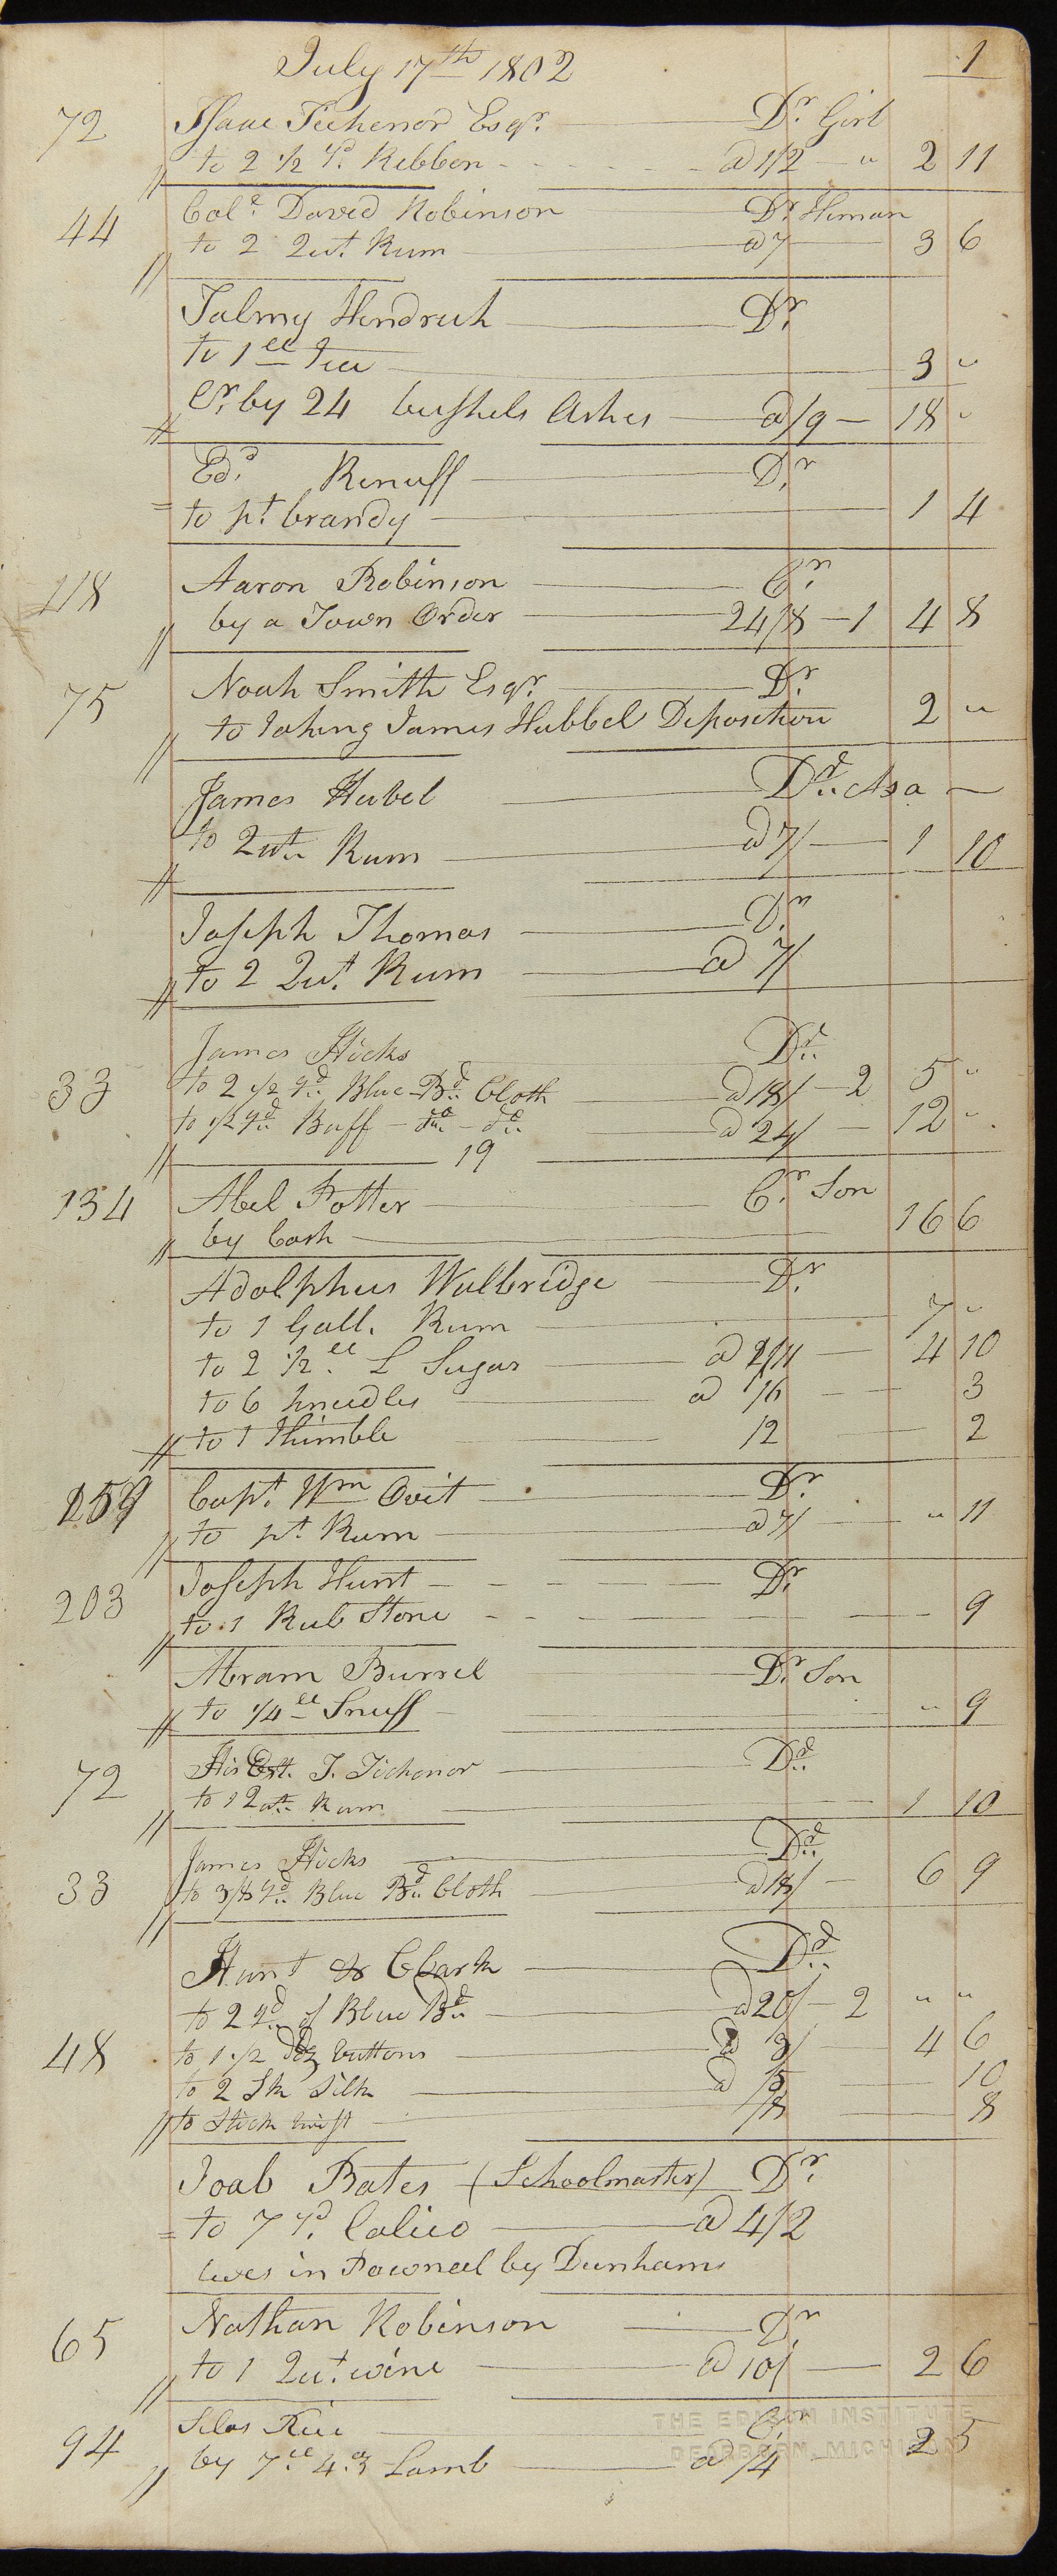 1
July 17th 1802
72 Isaac Tichenor Esqr. Dr. Girl
to 2 1/2 yd. Ribbon @ 1/2 — " 2 11
44 Colo. David Robinson Dr. Heman
to 2 Qut. Rum @ 7 3 6
Talmy Hendrick Dr.
to 1 ll Tea 3 "
Cr. by 24 bushels Ashes @ /9 — 18 "
Ed. Kenuff Dr.
to pt. brandy 1 4
118 Aaron Robinson Cr.
by a Town Order 24/8 — 1 4 8
75 Noah Smith Esqr. Dr.
to taking James Hubbel Deposition 2 "
James Hubel Dr. Asa
to Qut. Rum @ 7/ 1 10
Joseph Thomas Dr.
to 2 Qut. Rum @ 7/
33 James Hicks Dr.
to 2 1/2 yd. Blue Bd. Cloth @ 18/ — 2 5 "
to 1/2 yd. Buff — do. — do. @ 24/ — 12 "
19
134 Abel Potter Cr. Son
by Cash 16 6
Adolphus Walbridge Dr.
to 1 Gall. Rum 7 "
to 2 1/2 ll. L Sugar @ 1/11 4 10
to 6 kneedles @ 1/6 3
to 1 thimble 12 2
159 Capt. Wm Ovit Dr.
to pt. Rum @ 7/ " 11
203 Joseph Hunt Dr.
to 1 Rub Stone 9
Abram Burrel Dr. Son
to 1/4 ll Snuff " 9
72 His Ext. I. Tichenor Dr.
to 1 Qut. Rum 1 10
33 James Hicks Dr.
to 3/8 yd. Blue Bd. Cloth @ 18/ — 6 9
Hunt & Clark Dr.
to 2 yd. of Blue Bd. @ 20/ — 2 " "
48 to 1 1/2 doz buttons @ 3/ 4 6
to 2 Sk Silk @ /5 10
to Stick twist /8 8
Joab Bates (Schoolmaster) Dr.
to 7 yd. Calico @ 4/2
lives in Pownal by Dunhams
65 Nathan Robinson Dr.
to 1 Qut. wine @ 10/ 2 6
THE EDISON INSTITUTE
DEARBORN, MICHIGAN
94 Silas Rice Cr.
by 7 ll 4 oz Lamb @ /4 2 5